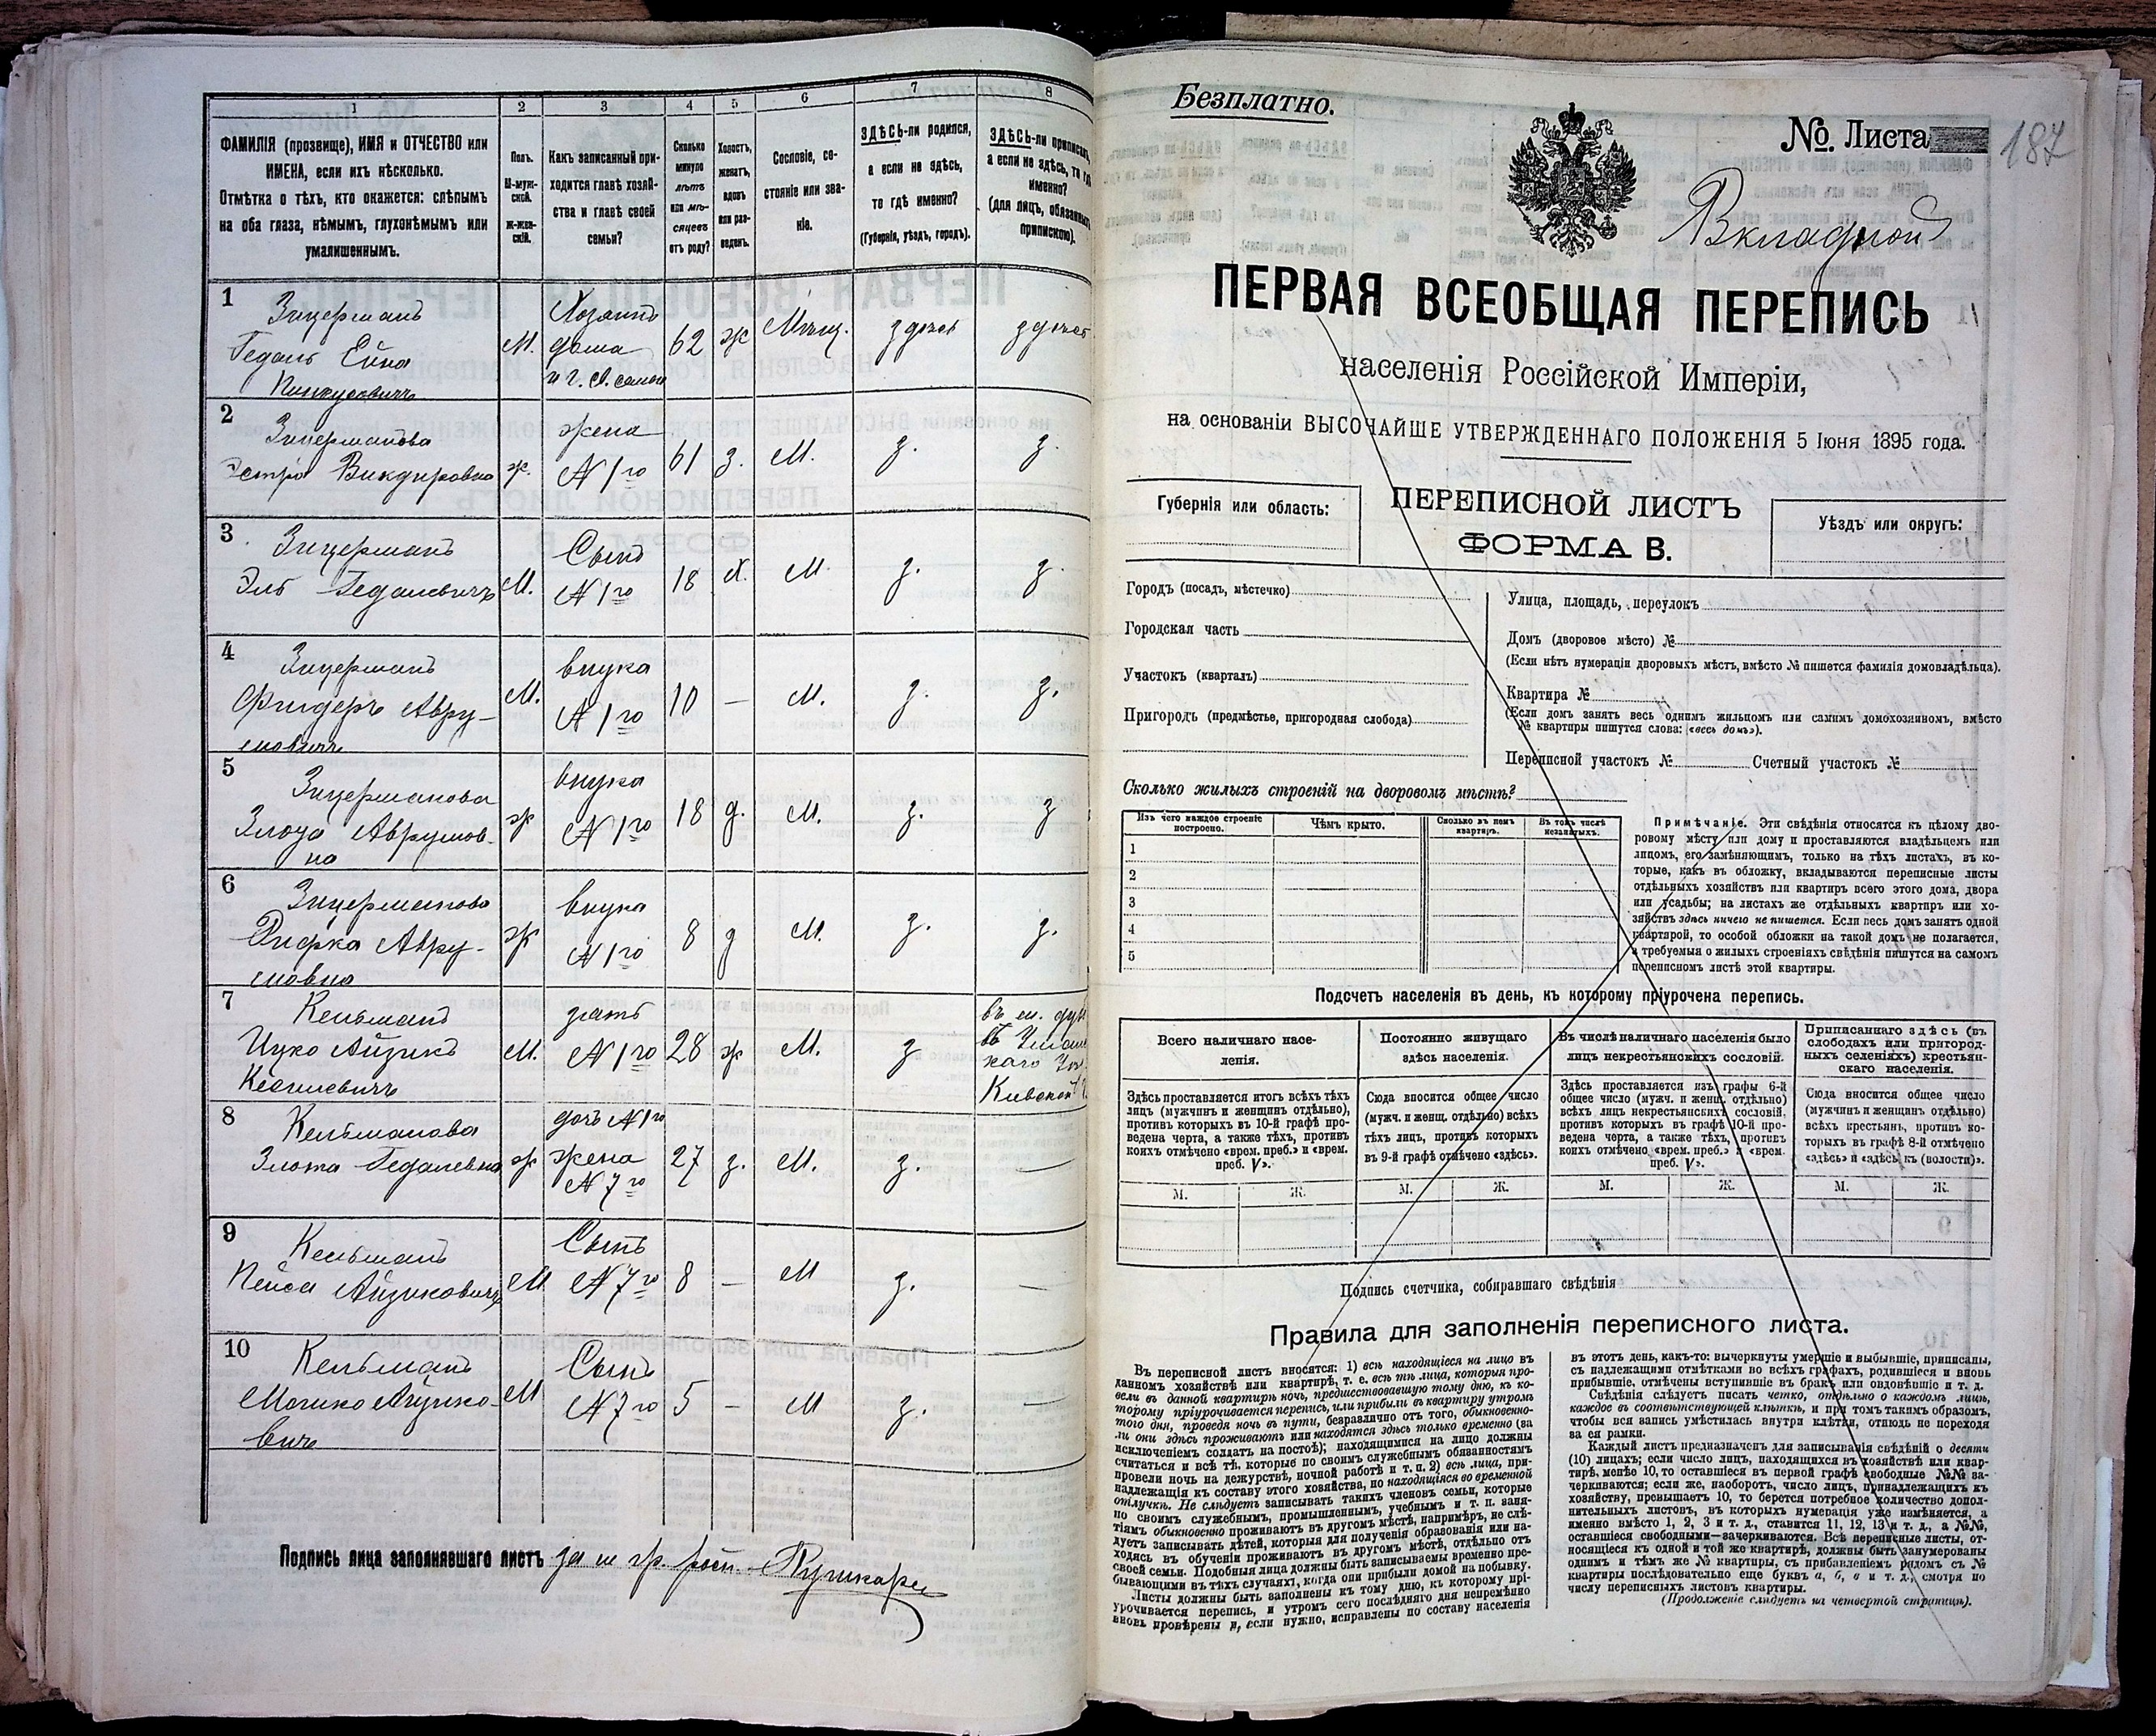 1
2
3
4
5
6
7
8
ФАМИЛІЯ (прозвище), ИМЯ и ОТЧЕСТВО или
ИМЕНА, если ихъ нѣсколько.
Отмѣтка о тѣхъ, кто окажется: слѣпымъ
на оба глаза, нѣмымъ, глухонѣмымъ или
умалишеннымъ.
Полъ.
М-муж-
ской.
Ж-жен-
скій.
Какъ записанный при-
ходится главѣ хозяй-
ства и главѣ своей
семьи?
Сколько
минуло
лѣтъ
или мѣ-
сяцевъ
отъ роду?
Холостъ,
женатъ,
вдовъ
или раз-
веденъ.
Сословіе, со-
стояніе или зва-
ніе.
ЗДѢСЬ-ли родился,
а если не здѣсь,
то гдѣ именно?
(Губернія, уѣздъ, городъ).
ЗДѢСЬ-ли приписанъ,
а если не здѣсь, то гдѣ
именно?
(для лицъ, обязанныхъ
припискою).
1
Зицерманъ
Гедаль Ейна
Пинкусовичъ
М.
Хозяинъ
дома
62
ж
Мѣщ.
здѣсь
здѣсь
2
Зицерманова
ж.
жена
N 1го
61
з.
М.
з.
з.
3
Зицерманъ
Эль Гедалевичъ
М.
Сынъ
N 1го
18
х.
М.
з.
з.
4
Зицерманъ
М.
внука
N 1го
10
—
М.
з.
з.
5
Зицерманова
Аврумов-
на
ж
внука
N 1го
18
д.
М.
з.
з
6
Зицерманова
Рифка Авру-
мовна
ж
внука
N 1го
8
д
М.
з.
з.
7
Кельманъ
Ицко Айзикъ
М.
зять
N 1го
28
ж
М.
з
8
Кельманова
Злота Гедалевна
ж
дочь N 1го
жена
N 7го
27
з.
М.
з.
—
9
Кельманъ
Пейса Айзиковичъ
М
Сынъ
N 7го
8
—
М
з.
—
10
Кельманъ
Мошко Айзико-
вичъ
М
Сынъ
N 7го
5
-
М
з.
—
Подпись лица заполнявшаго листъ
Безплатно.
№ Листа
187
Вкладной
ПЕРВАЯ ВСЕОБЩАЯ ПЕРЕПИСЬ
населенія Россійской Имперіи,
на основаніи ВЫСОЧАЙШЕ УТВЕРЖДЕННАГО ПОЛОЖЕНІЯ 5 Іюня 1895 года.
Губернія или область:
ПЕРЕПИСНОЙ ЛИСТЪ
ФОРМА В.
Уѣздъ или округъ:
Городъ (посадъ, мѣстечко)
Городская часть
Участокъ (кварталъ)
Пригородъ (предмѣстье, пригородная слобода)
Улица, площадь, переулокъ
Домъ (дворовое мѣсто) №
(Если нѣтъ нумераціи дворовыхъ мѣстъ, вмѣсто № пишется фамилія домовладѣльца).
Квартира №
(Если домъ занятъ весь однимъ жильцомъ или самимъ домохозяиномъ, вмѣсто
№ квартиры пишутся слова: «весь домъ»).
Переписной участокъ № Счетный участокъ №
Сколько жилыхъ строеній на дворовомъ мѣстѣ?
Изъ чего каждое строеніе
построено.
Чѣмъ крыто.
Сколько въ немъ
квартиръ.
Въ томъ числѣ
незанятыхъ.
1
2
3
4
5
Примѣчаніе. Эти свѣдѣнія относятся къ цѣлому дво-
ровому мѣсту или дому и проставляются владѣльцемъ или
лицомъ, его замѣняющимъ, только на тѣхъ листахъ, въ ко-
торые, какъ въ обложку, вкладываются переписные листы
отдѣльныхъ хозяйствъ или квартиръ всего этого дома, двора
или усадьбы; на листахъ же отдѣльныхъ квартиръ или хо-
зяйствъ здѣсь ничего не пишется. Если весь домъ занятъ одной
квартирой, то особой обложки на такой домъ не полагается,
а требуемыя о жилыхъ строеніяхъ свѣдѣнія пишутся на самомъ
переписномъ листѣ этой квартиры.
Подсчетъ населенія въ день, къ которому пріурочена перепись.
Всего наличнаго насе-
ленія.
Постоянно живущаго
здѣсь населенія.
Въ числѣ наличнаго населенія было
лицъ некрестьянскихъ сословій.
Приписаннаго здѣсь (въ
слободахъ или пригород-
ныхъ селеніяхъ) крестьян-
скаго населенія.
Здѣсь проставляется итогъ всѣхъ тѣхъ
лицъ (мужчинъ и женщинъ отдѣльно),
противъ которыхъ въ 10-й графѣ про-
ведена черта, а также тѣхъ, противъ
коихъ отмѣчено «врем. преб.» и «врем.
преб. V».
Сюда вносится общее число
(мужч. и женщ. отдѣльно) всѣхъ
тѣхъ лицъ, противъ которыхъ
въ 9-й графѣ отмѣчено «здѣсь».
Здѣсь проставляется изъ графы 6-й
общее число (мужч. и женщ. отдѣльно)
всѣхъ лицъ некрестьянскихъ сословій,
противъ которыхъ въ графѣ 10-й про-
ведена черта, а также тѣхъ, противъ
коихъ отмѣчено «врем. преб.» и «врем.
преб. V».
Сюда вносится общее число
(мужчинъ и женщинъ отдѣльно)
всѣхъ крестьянъ, противъ ко-
торыхъ въ графѣ 8-й отмѣчено
«здѣсь» и «здѣсь къ (волости)».
М. Ж. М. Ж. М. Ж. М. Ж.
Подпись счетчика, собиравшаго свѣдѣнія
Правила для заполненія переписного листа.
Въ переписной листъ вносятся: 1) всѣ находящіеся на лицо въ
данномъ хозяйствѣ или квартирѣ, т. е. всѣ тѣ лица, которыя про-
вели въ данной квартирѣ ночь, предшествовавшую тому дню, къ ко-
торому пріурочивается перепись, или прибыли въ квартиру утромъ
того дня, проведя ночь въ пути, безразлично отъ того, обыкновенно-
ли они здѣсь проживаютъ или находятся здѣсь только временно (за
исключеніемъ солдатъ на постоѣ); находящимися на лицо должны
считаться и всѣ тѣ, которые по своимъ служебнымъ обязанностямъ
провели ночь на дежурствѣ, ночной работѣ и т. п. 2) всѣ лица, при-
надлежащія къ составу этого хозяйства, но находящіяся во временной
отлучкѣ. Не слѣдуетъ записывать такихъ членовъ семьи, которые
по своимъ служебнымъ, промышленнымъ, учебнымъ и т. п. заня-
тіямъ обыкновенно проживаютъ въ другомъ мѣстѣ, напримѣръ, не слѣ-
дуетъ записывать дѣтей, которыя для полученія образованія или на-
ходясь въ обученіи проживаютъ въ другомъ мѣстѣ, отдѣльно отъ
своей семьи. Подобныя лица должны быть записываемы временно пре-
бывающими въ тѣхъ случаяхъ, когда они прибыли домой на побывку.
Листы должны быть заполнены къ тому дню, къ которому прі-
урочивается перепись, и утромъ сего послѣдняго дня непремѣнно
вновь провѣрены и, если нужно, исправлены по составу населенія
въ этотъ день, какъ-то: вычеркнуты умершіе и выбывшіе, приписаны,
съ надлежащими отмѣтками во всѣхъ графахъ, родившіеся и вновь
прибывшіе, отмѣчены вступившіе въ бракъ или овдовѣвшіе и т. д.
Свѣдѣнія слѣдуетъ писать четко, отдѣльно о каждомъ лицѣ,
каждое въ соотвѣтствующей клѣткѣ, и при томъ такимъ образомъ,
чтобы вся запись умѣстилась внутри клѣтки, отнюдь не переходя
за ея рамки.
Каждый листъ предназначенъ для записыванія свѣдѣній о десяти
(10) лицахъ; если число лицъ, находящихся въ хозяйствѣ или квар-
тирѣ, менѣе 10, то оставшіеся въ первой графѣ свободные №№ за-
черкиваются; если же, наоборотъ, число лицъ, принадлежащихъ къ
хозяйству, превышаетъ 10, то берется потребное количество допол-
нительныхъ листовъ, въ которыхъ нумерація уже измѣняется, а
именно вмѣсто 1, 2, 3 и т. д., ставится 11, 12, 13 и т. д., а №№,
оставшіеся свободными—зачеркиваются. Всѣ переписные листы, от-
носящіеся къ одной и той же квартирѣ, должны быть занумерованы
однимъ и тѣмъ же № квартиры, съ прибавленіемъ рядомъ съ №
квартиры послѣдовательно еще буквъ а, б, в и т. д., смотря по
числу переписныхъ листовъ квартиры.
(Продолженіе слѣдуетъ на четвертой страницѣ).